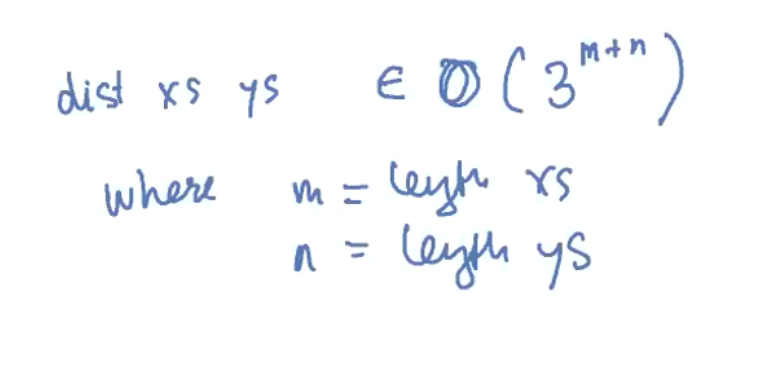 dist xs ys ∈ O(3^{m+n})
where m = length xs
n = length ys